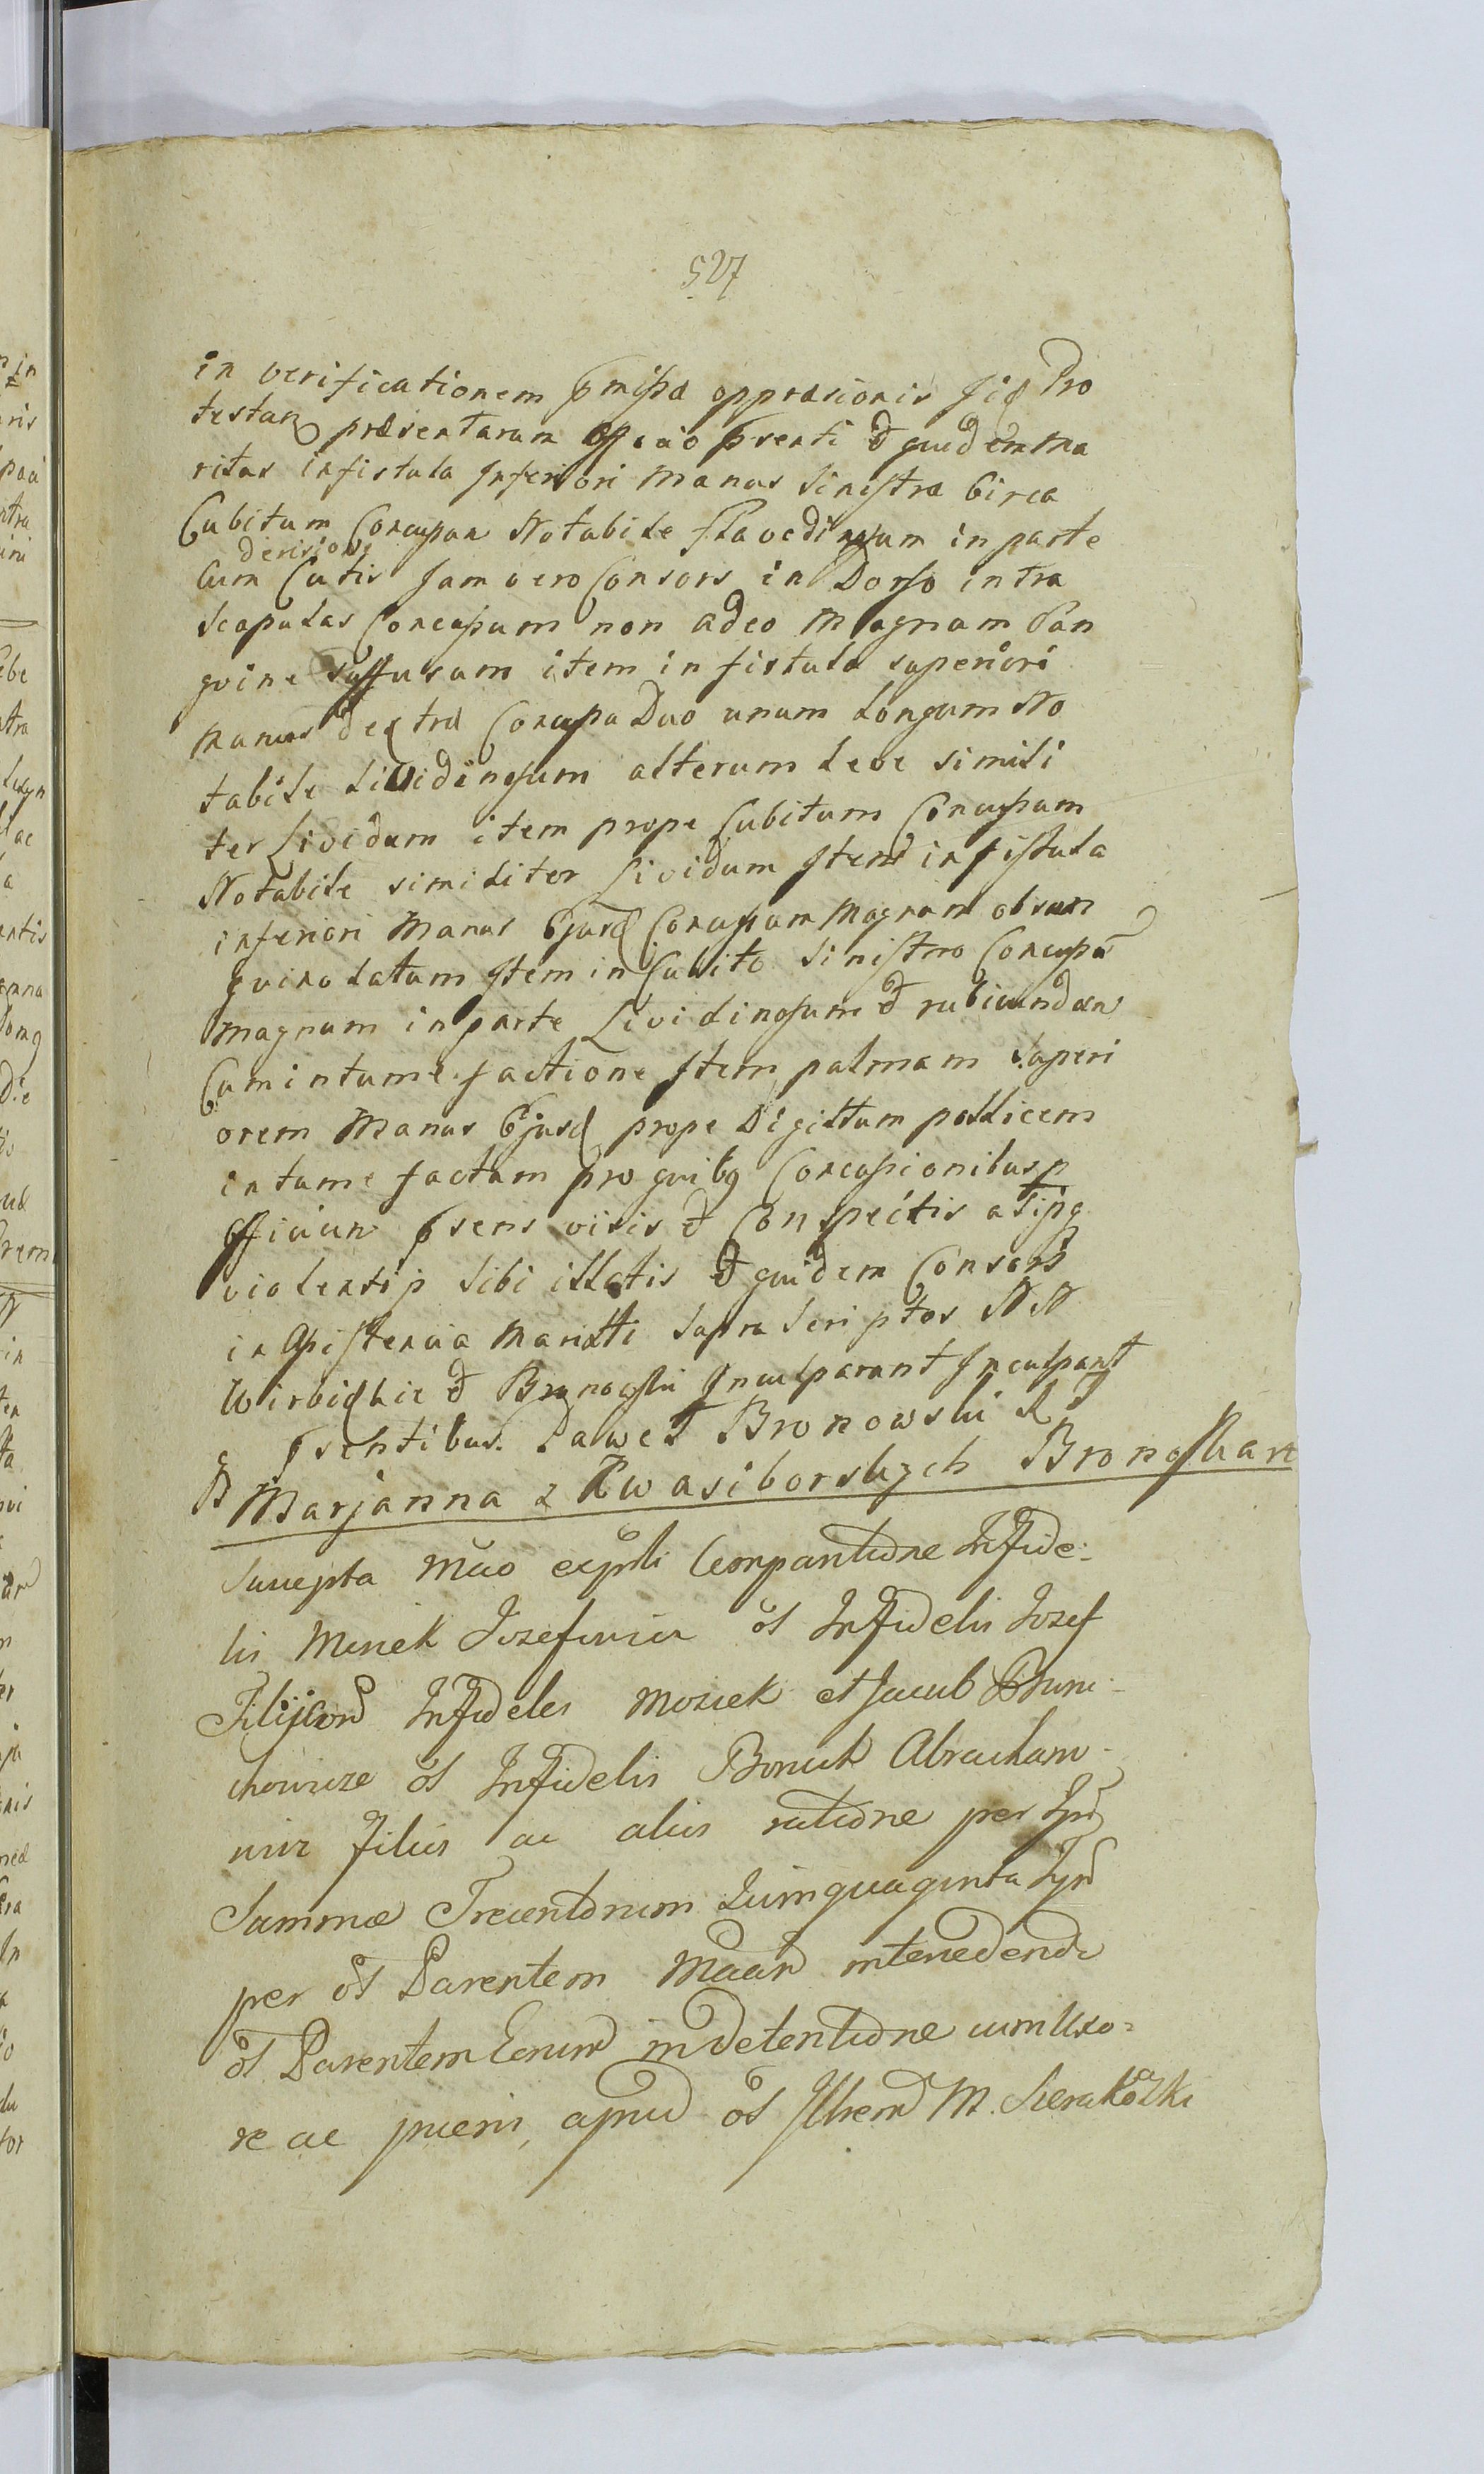 527
in verificationem pmissa oppressionis sic Pro
testan præsentarum Officio psenti et quidem ma
ritus in fistula Inferiori manus Sinistra Circa
Cubitum Concusum Notabile flavedinosum in parte
derisione
Cum Cutis Jam vero Consors in Dorso intra
Scapulas Concussum non adeo Magnam San
gvine Suffusum item in fistula superiori
manus dextra Concussa Duo unum Longum No
tabile Lividinosum alterum Leve simili
ter Lividum item prope Cubitum Concussum
Notabile similiter Lividum Item in fistula
inferiori Manus Ejusd Concussum Magnum obsan
gvinolatum Item in Cubito Sinistro Concussu
magnum in parte Lividinosum et rubicundum
Cum intume factione Item palmam Superi
orem Manus Ejusd prope Digittum pollicem
intume factam pro qvibq Concussionibus
Officiun psens visis et Conspectis a
violentip Sibi illatis et quidem Consors
in Assistencia Maritti Supra Scriptos NN
et Bronoski Inculparunt Inculpant
psentibus. Paweł Bronowski
Marjanna z Kwasiborskych Bronoskan
Suscepta
lis Mosiek Jozefowicz ol Infidelis Jozef
Infideles Mosiek et Jacub
ol Infidelis Boruch Abraham
wicz filius ac alias ratione per
Summæ Trecentorum Quinquaginta
per ol Parentem
ol Parentem Eorum in detentione cum Uxo=
re ac pueris, apud ol M. Sierakoski